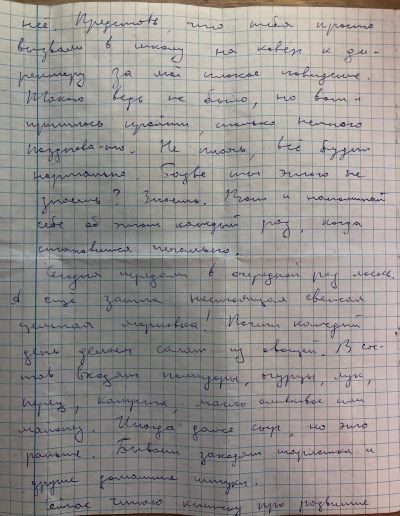 нее. Представь, что тебя просто
вызвали в школу на ковер к ди-
ректору за моё плохое поведение.
Такого ведь не было, но вот и
пришлось пройти, только немного
поздновато. Не плачь, всё будет
нормально. Разве ты этого не
знаешь? Знаешь. Вот и напоминай
себе об этом каждый раз, когда
становится печально.
Сегодня передали в очередной раз лосось.
А ещё зашла настоящая свежая
цельная морковка! Почти каждый
день делаем салат из овощей. В сос-
тав входят помидоры, огурцы, лук,
перец, капуста, масло оливковое или
майонез. Иногда даже сыр, но это
раньше. Бывает заходят шарлотка и
другие домашние штуки.
Сейчас читаю книгу про развитие